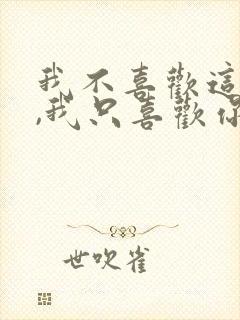 我不喜歡這
,我只喜歡你
世吹雀